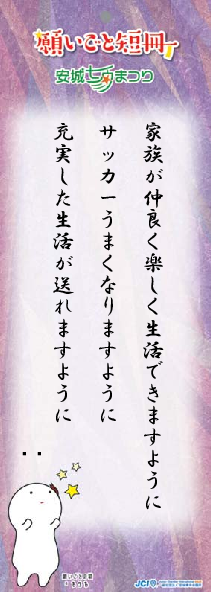 願いごと短冊
安城七夕まつり
家族が仲良く楽しく生活できますように
サッカーうまくなりますように
充実した生活が送れますように
・・
願いごと短冊
JCI